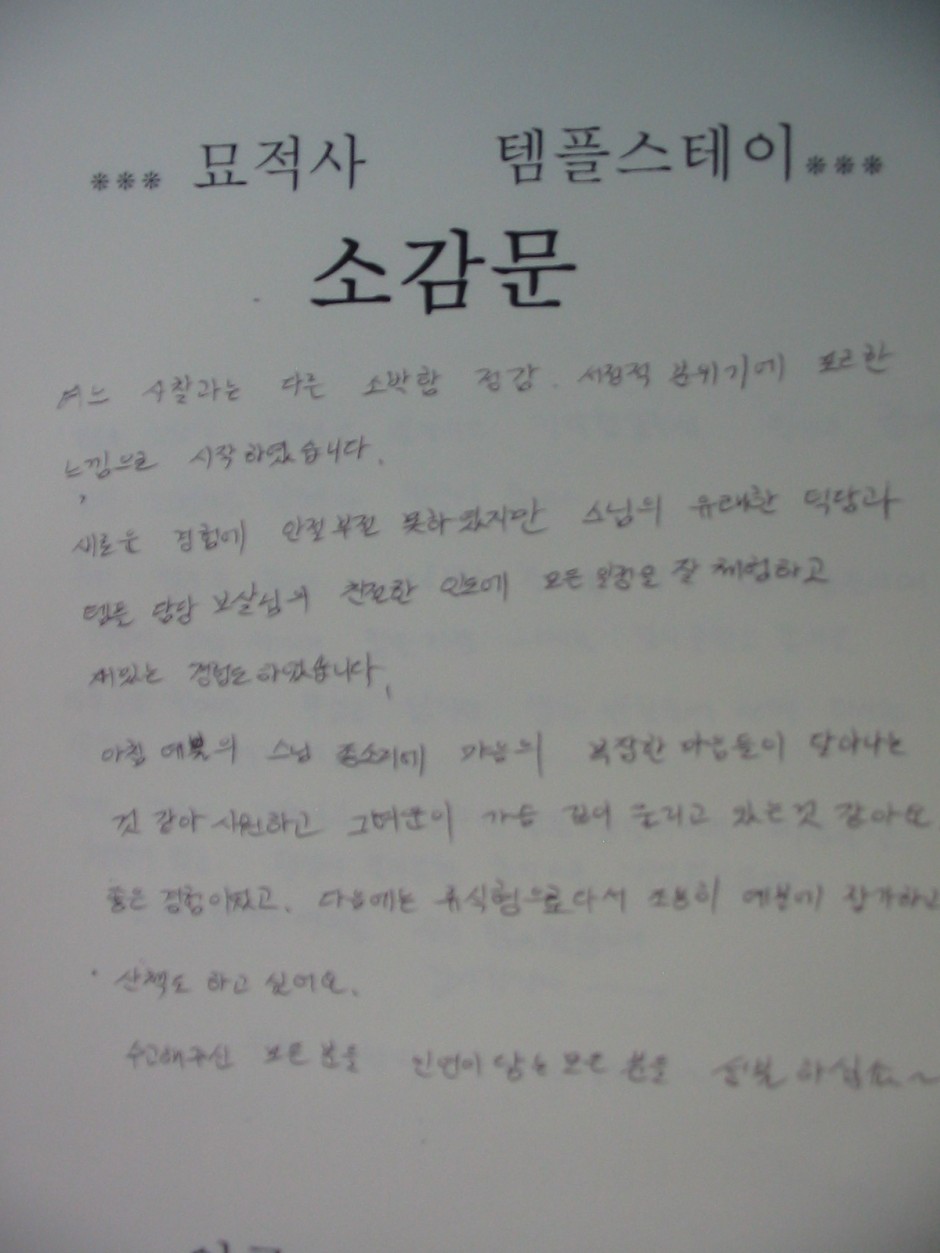 *** 묘적사 템플스테이 ***
소감문
여느 사찰과는 다른 소박함 정감. 서정적 분위기에 포근한
느낌으로 시작하였습니다.
새로운 경험에 안절부절 못하였지만 스님의 유쾌한 덕담과
템플 담당 보살님의 친절한 인도에 모든 일정을 잘 체험하고
재밌는 경험도하였습니다.
아침 예불의 스님 종소리에 가슴의 복잡한 마음들이 달아나는
것 같아 시원하고 그여운이 가슴 깊이 울리고 있는것 같아요
좋은 경험이었고. 다음에는 휴식형으로 다시 조용히 예불에 참가하고
산책도 하고 싶어요.
수고해주신 모든분들 인연이 닿는 모든 분들 성불 하십쇼~